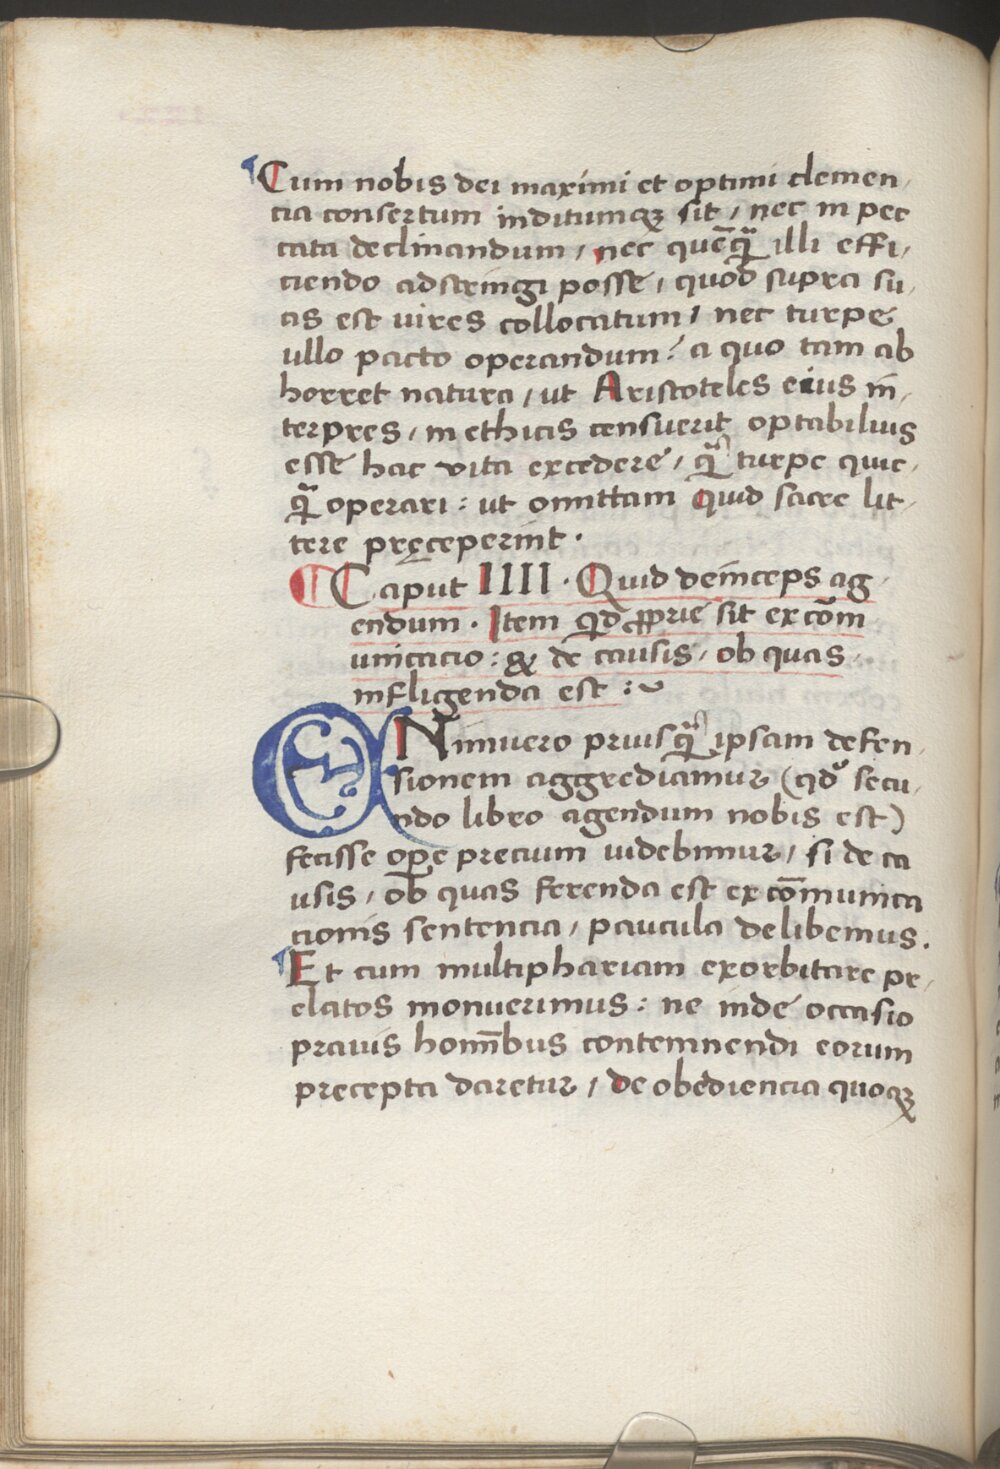 Cum nobis dei maximi et optimi clemen
cia consertum inditumqꝫ sit / nec in pec
cata declinandum / nec quēqᷓ illi effi
ciendo adstringi posse / quod supra su
as est uires collocatum / nec turpe
ullo pacto operandum? a quo tam ab
horret natura / ut Aristoteles eius in
terpres / in ethicis censuerit optabilius
esse hac vita excedere / qᷓ turpe quic
qᷓ operari : ut omittam quid sacre lit
tere pręceperint .
Caput IIII . Quid deinceps ag
endum . Item qd ꝓprie sit excōm
unicacio : & de causis / ob quas
infligenda est :
ENimuero priusqᷓ ipsam defen
sionem aggrediamur (qd secu
ndo libro agendum nobis est)
fecisse ope precium uidebimur / si de ca
usis / ob quas ferenda est excōmunica
cionis sentencia / paucula delibemus .
Et cum multiphariam exorbitare pr
elatos monuerimus : ne inde occasio
prauis homībus contemnendi eorum
precepta daretur / de obediencia quoqꝫ